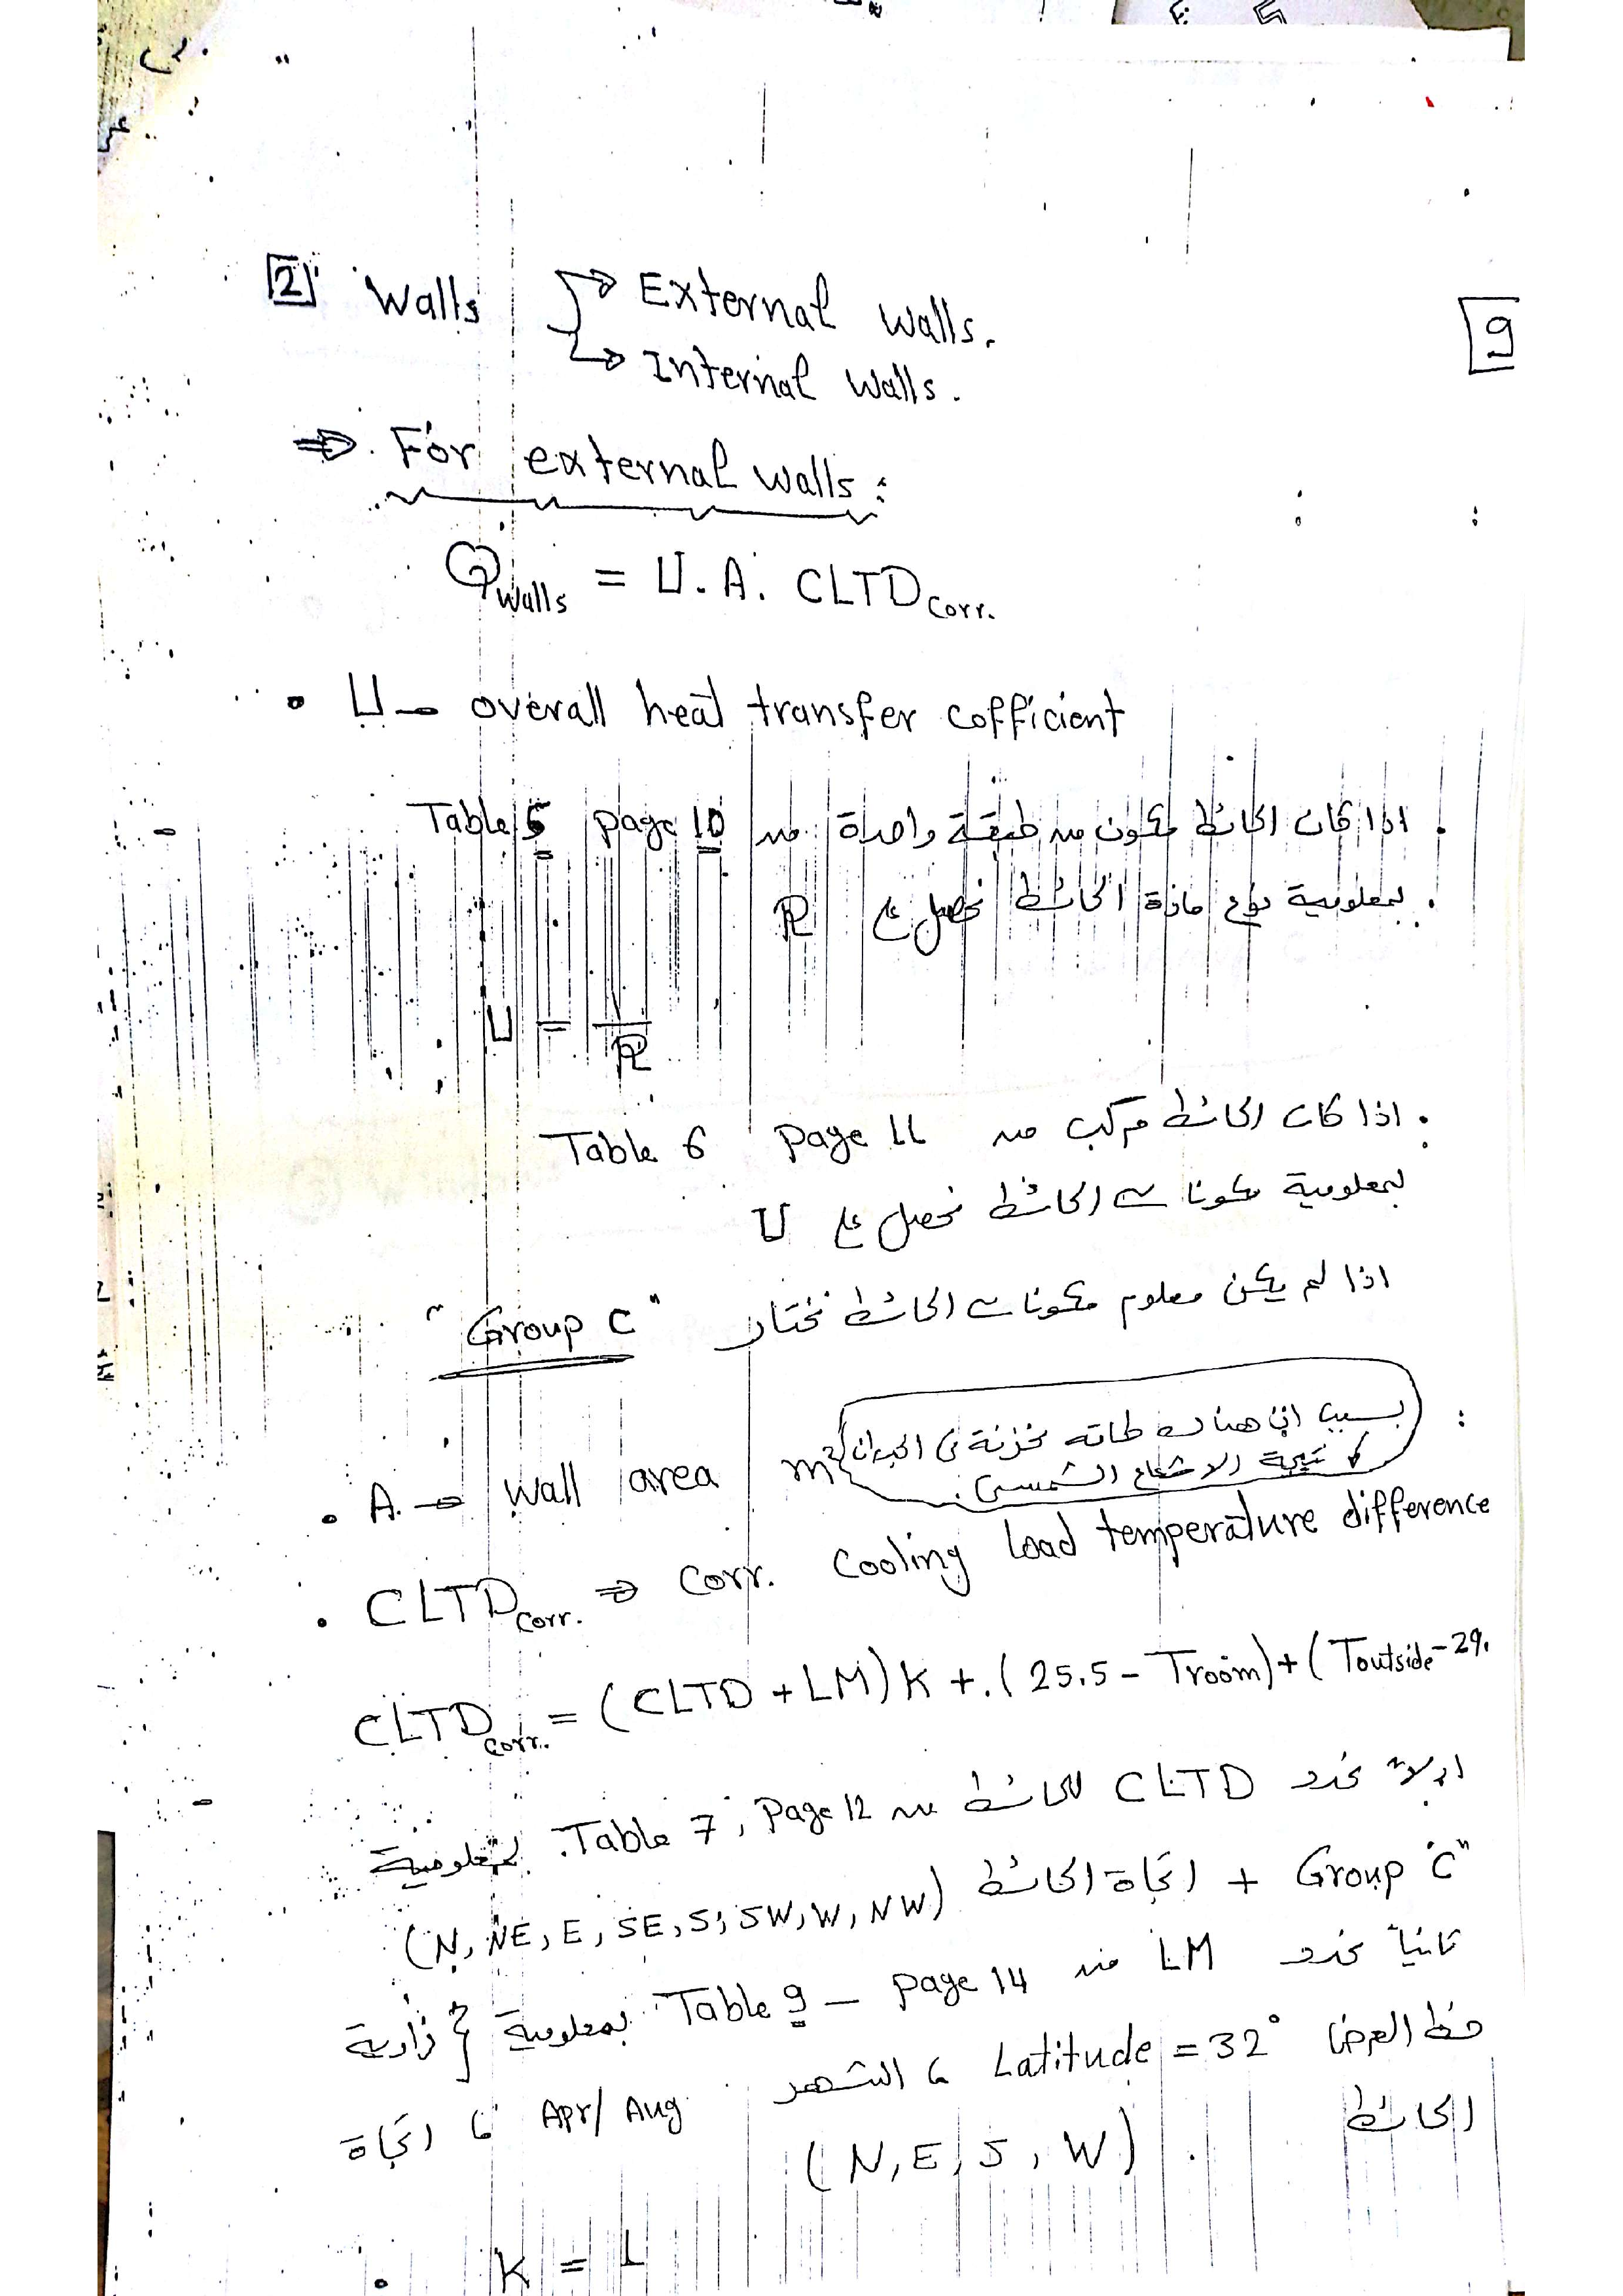 [2] Walls → External walls.
→ Internal walls.
9
⇒ For external walls:
Q walls = U. A. CLTD corr.
• U → overall heat transfer cofficient
• اذا كان الحائط مكون من طبقة واحدة من Table 5 page 10
• بمعلومية نوع مادة الحائط نحصل على R
U = 1/R
• اذا كان الحائط مركب من Table 6 page 11
بمعلومية مكونات الحائط نحصل على U
اذا لم يكن معلوم مكونات الحائط نختار "Group C"
بسبب ان هناك طاقه مخزنة فى الجدران
نتيجة الاشعاع الشمسى.
• A → wall area m²
• CLTD corr. ⇒ Corr. Cooling load temperature difference
CLTD corr. = (CLTD + LM) K + (25.5 - Troom) + (Toutside - 29.
اولاً نحدد CLTD للحائط من Table 7, Page 12 بمعلومية
Group "C" + اتجاة الحائط (N, NE, E, SE, S, SW, W, NW)
ثانياً نحدد LM من Table 9 - page 14 بمعلومية زاوية
خط العرض Latitude = 32° ، الشهر Apr/Aug ، اتجاة
الحائط (N, E, S, W)
• K = 1